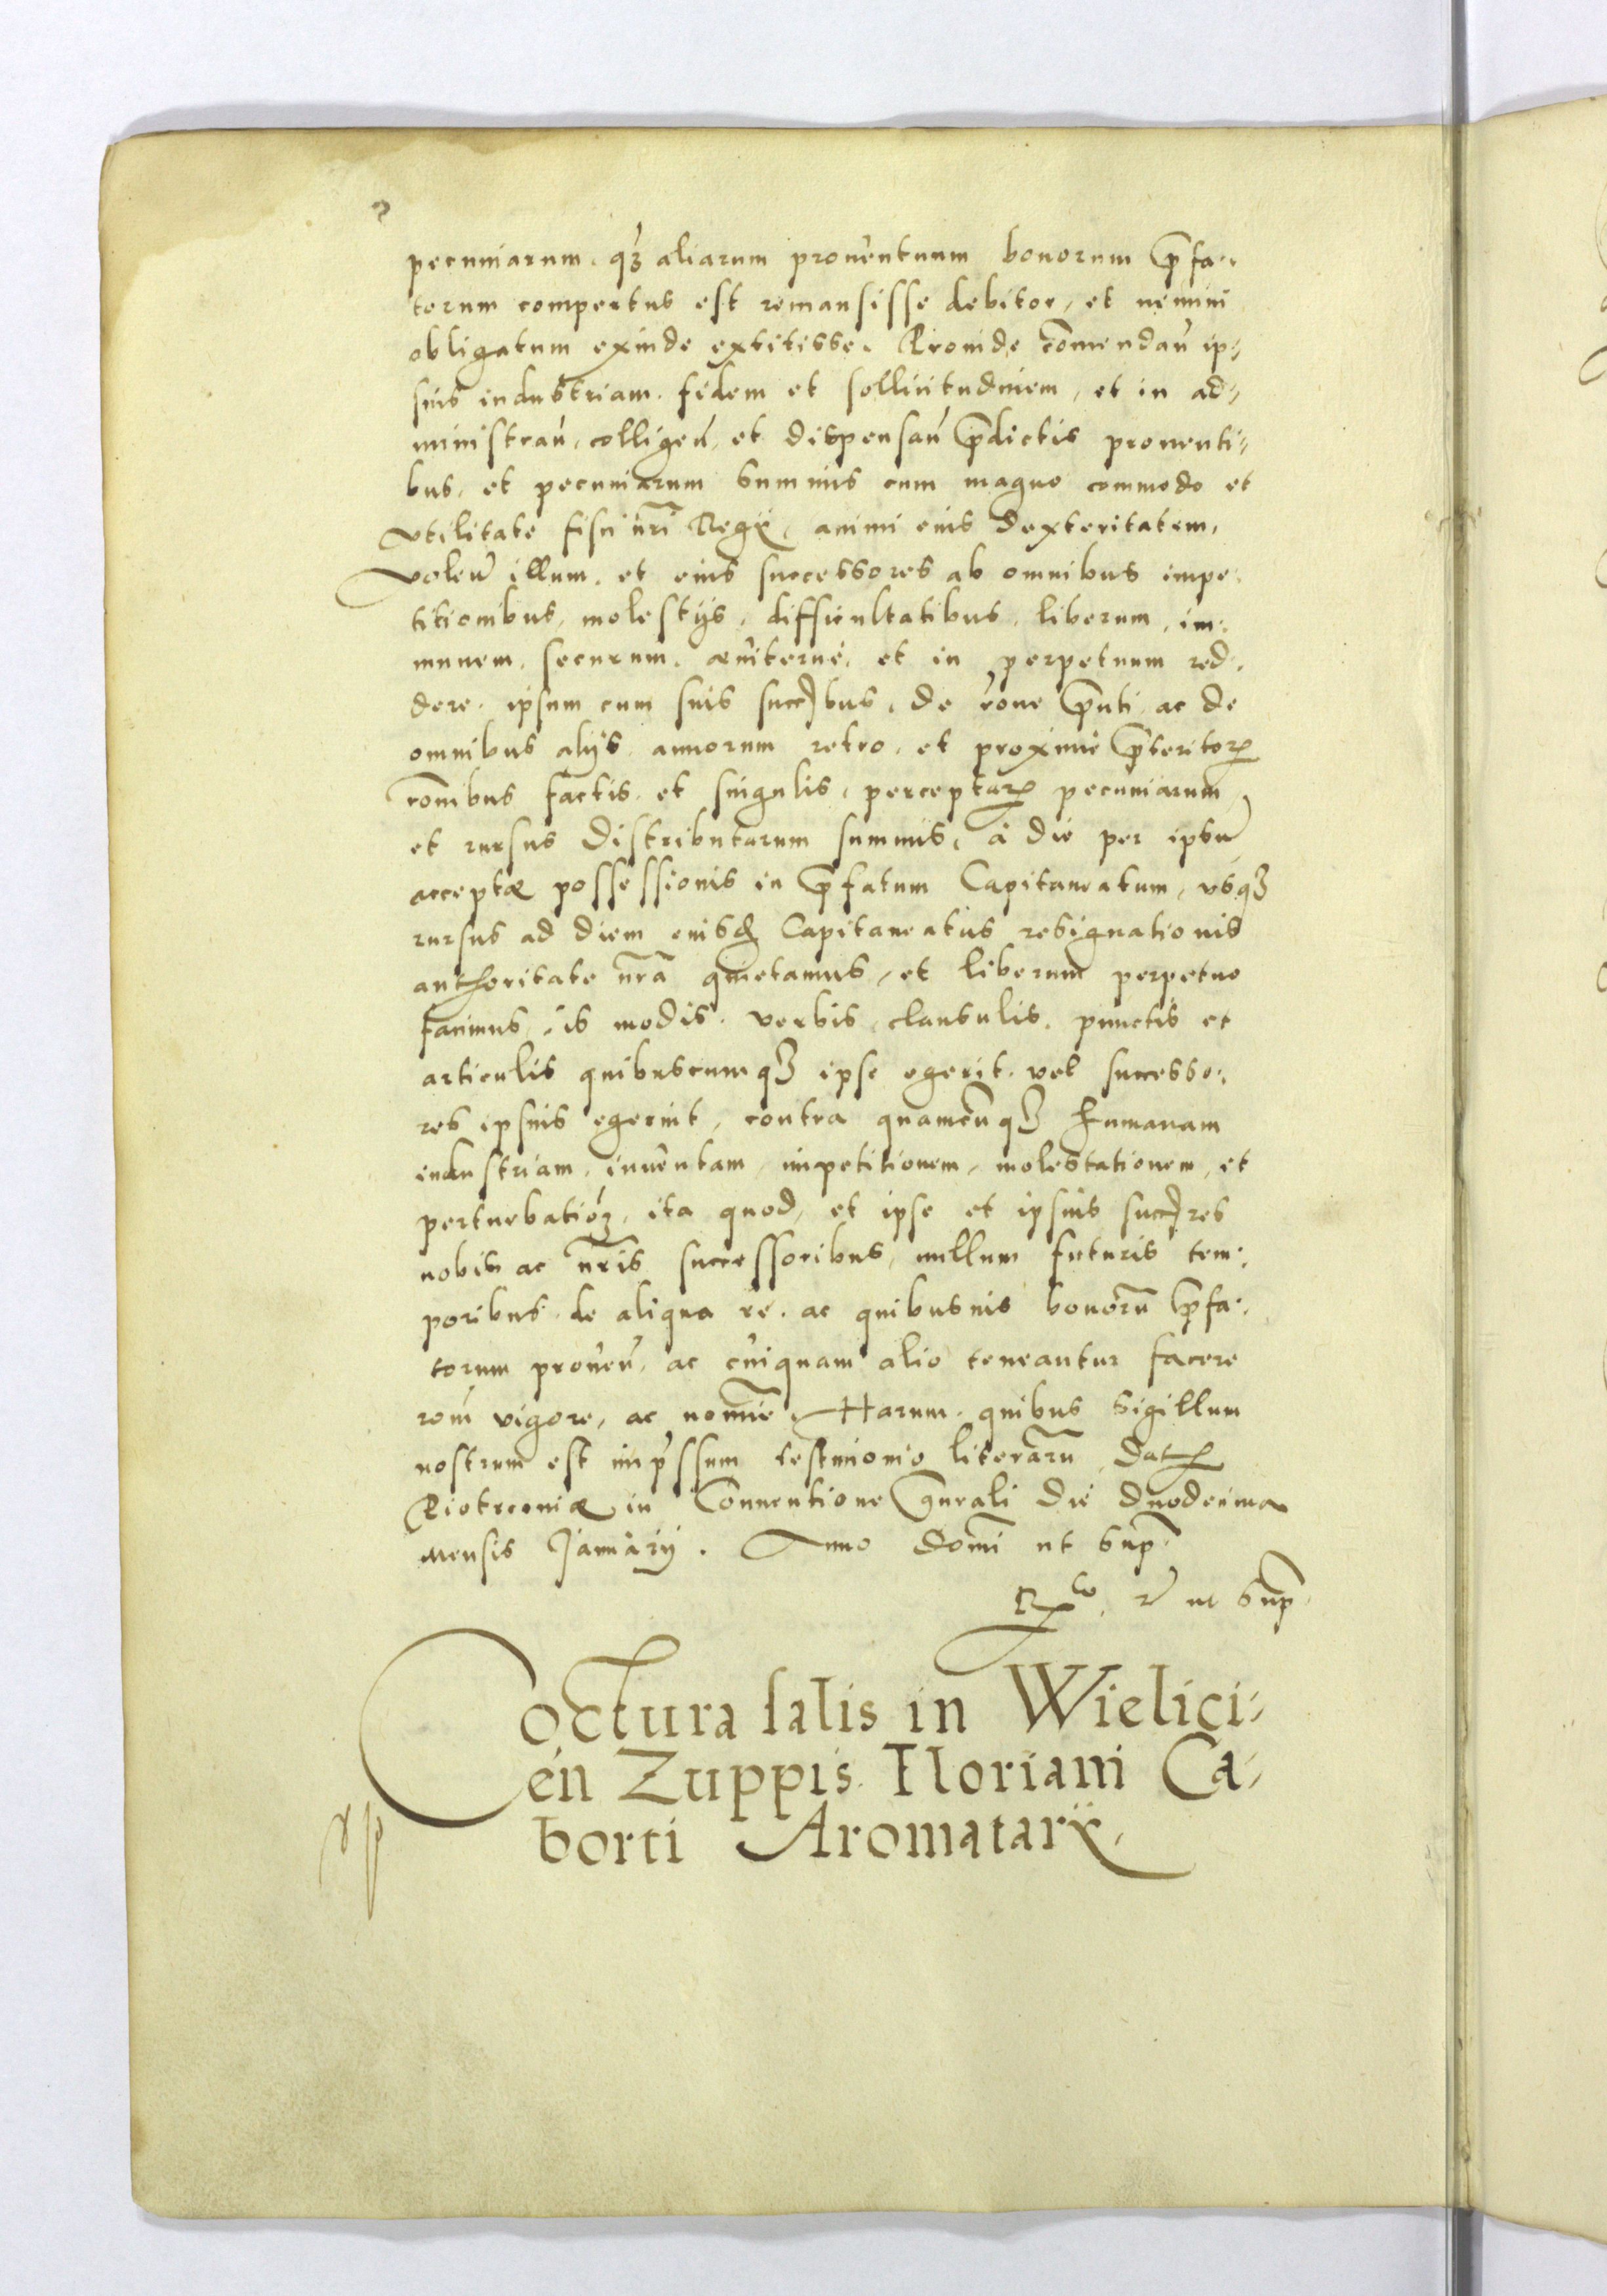 pecuniarum. q̃ȝ aliarum prouentuum bonorum p̃fa-
torum compertus est remansisse debitor, et nemini
obligatum exinde extitisse. Proinde com̃endan̄ ip-
sius industriam. fidem et sollicitudinem, et in ad-
ministran̄, colligen̄, et dispensan̄ p̃dictis prouenti-
bus, et pecuniarum summis cum magno commodo et
vtilitate fisci nr̃i Regij, animi eius dexteritatem,
volen̄ illum, et eius successores ab omnibus impe-
titionibus, molestijs, difficultatibus, liberum, im-
munem, securum, æuiternè, et in perpetuum red-
dere. ipsum cum suis succ̃bus, de rõne p̃nti ac de
omnibus alijs annorum retro, et proximè p̃teritorꝝ
rõnibus factis et singulis, perceptarꝝ pecuniarum
et rursus distributarum summis, à die per ipsum
acceptæ possessionis in p̃fatum Capitaneatum, vsqȝ
rursus ad diem eiusd̃ Capitaneatus resignationis
authoritate nr̃a quietamus, et liberum perpetuo
facimus, is modis. verbis, clausulis. punctis et
articulis quibuscumqȝ ipse egerit. vel successo-
res ipsius egerint, contra quamcũqȝ humanam
industriam, inuentam, impetitionem, molestationem, et
perturbatióȝ, ita quod, et ipse et ipsius succ̃res
nobis ac nr̃is successoribus, nullum futuris tem-
poribus. de aliqua re. ac quibusuis bonorũ p̃fa-
torum prouen̄, ac cuiquam alio teneantur facere
rõm vigore, ac nomĩe. Harum. quibus Sigillum
nostrum est imp̃ssum testimonio literarũ, Datꝝ
Piotrconiæ in Conuentione gñrali die duodecima
mensis Januarij. Anno Domĩ ut sup̃
Rx̃ to ut sup̃
Coctura salis in Wielici-
eñ Zuppis Floriani Ca-
borti Aromatarij